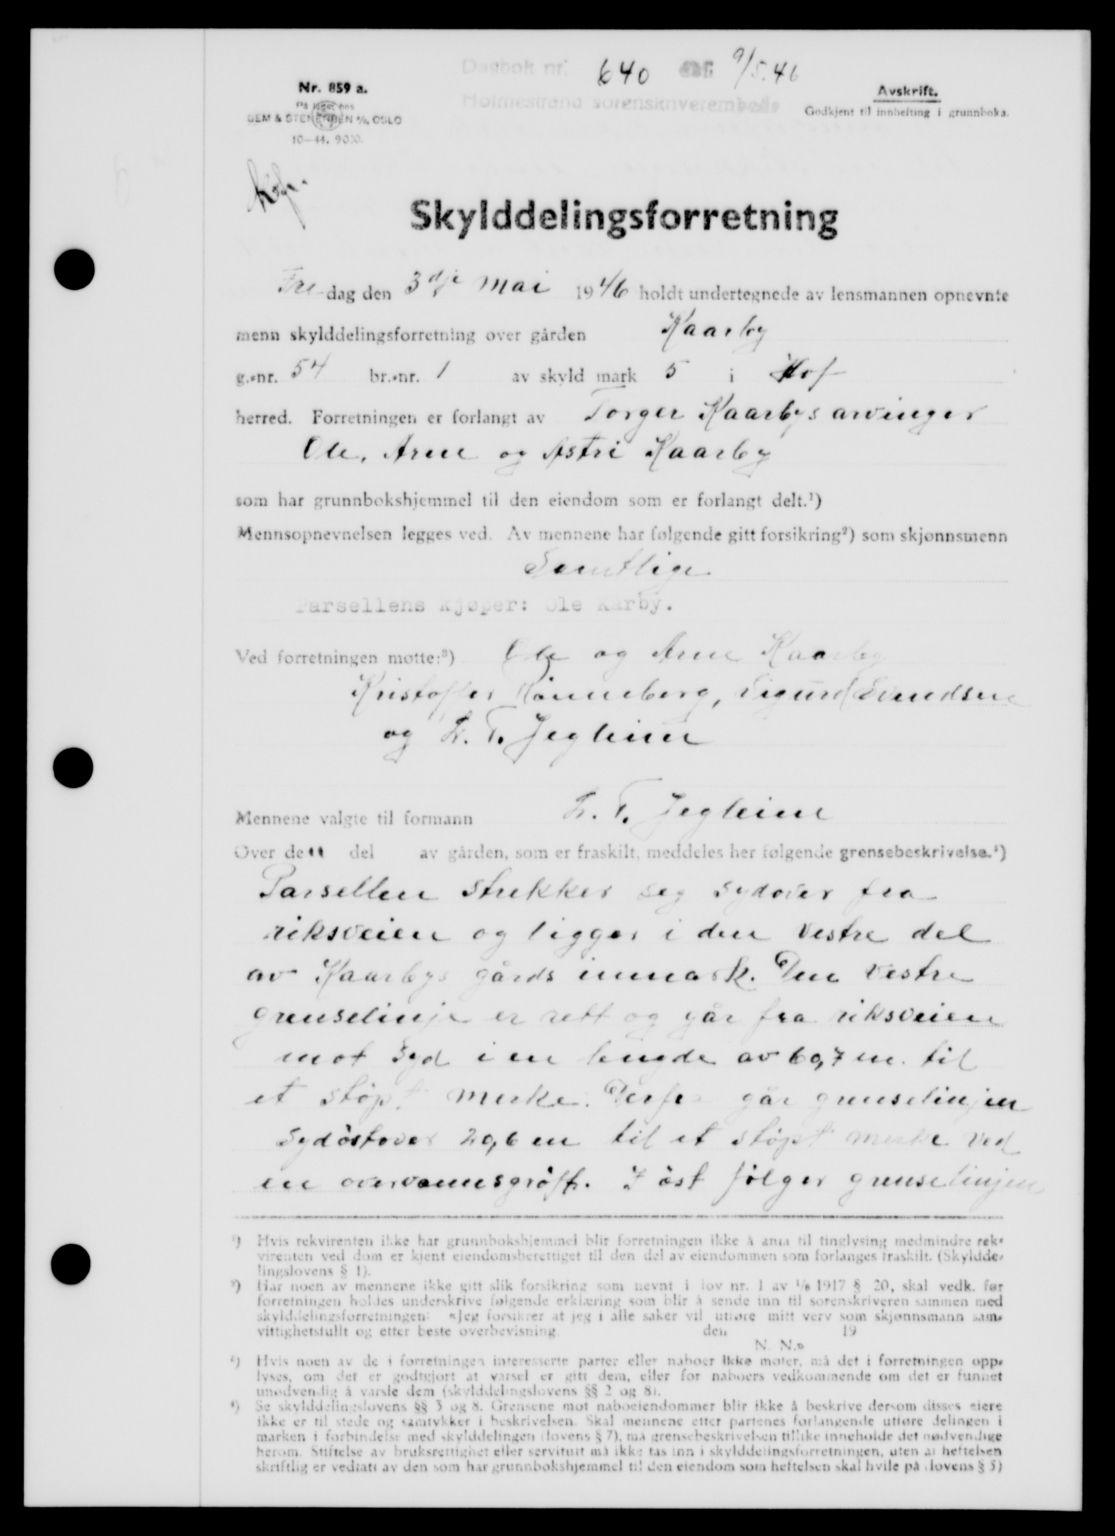 Dagbok nr. 640 9/5.46
Holmestrand sorenskriverembede
Nr. 859 a.
På lager hos
SEM & STENERSEN A/S, OSLO
10-44. 9000.
Avskrift.
Godkjent til innhefting i grunnboka.
Hof.
Skylddelingsforretning
Fre dag den 3dje mai 1946 holdt undertegnede av lensmannen opnevnte
menn skylddelingsforretning over gården Kaarby
g.-nr. 54 br.-nr. 1 av skyld mark 5 i Hof
herred. Forretningen er forlangt av Torger Kaarbys arvinger
Ole, Arne og Astri Kaarby
som har grunnbokshjemmel til den eiendom som er forlangt delt.¹)
Mennsopnevnelsen legges ved. Av mennene har følgende gitt forsikring²) som skjønnsmenn
Samtlige
Parsellens kjøper: Ole Karby.
Ved forretningen møtte:³) Ole og Arne Kaarby
Kristoffer Rønneberg, Sigurd Svendsen
og L. T. Jegleim
Mennene valgte til formann L. T. Jegleim
Over den del av gården, som er fraskilt, meddeles her følgende grensebeskrivelse.⁴)
Parsellen strekker seg sydover fra
riksveien og ligger i den vestre del
av Kaarbys gårds innmark. Den vestre
grenselinje er rett og går fra riksveien
mot syd i en lengde av 60,7 m. til
et støpt merke. Derfra går grenselinjen
sydøstover 20,6 m til et støpt merke ved
en overvannsgrøft. I øst følger grenselinjen
¹) Hvis rekvirenten ikke har grunnbokshjemmel blir forretningen ikke å anta til tinglysing medmindre rek-
virenten ved dom er kjent eiendomsberettiget til den del av eiendommen som forlanges fraskilt. (Skyldde-
lingslovens § 1).
²) Har noen av mennene ikke gitt slik forsikring som nevnt i lov nr. 1 av 1/6 1917 § 20, skal vedk. før
forretningen holdes underskrive følgende erklæring som blir å sende inn til sorenskriveren sammen med
skylddelingsforretningen: «Jeg forsikrer at jeg i alle saker vil utføre mitt verv som skjønnsmann sam-
vittighetsfullt og etter beste overbevisning. den 19
N. N.»
³) Hvis noen av de i forretningen interesserte parter eller naboer ikke møter, må det i forretningen opp-
lyses, om det er godtgjort at varsel er gitt dem, eller for naboers vedkommende om det er funnet
unødvendig å varsle dem (skylddelingslovens §§ 2 og 8).
⁴) Se skylddelingslovens §§ 3 og 8. Grensene mot naboeiendommer blir ikke å beskrive dersom disses eiere
ikke er til stede og samtykker i beskrivelsen. Skal mennene etter partenes forlangende utføre delingen i
marken i forbindelse med skylddelingen (lovens § 7), må grensebeskrivelsen tillike inneholde det nødvendige
herom. Stiftelse av bruksrettighet eller servitutt må ikke tas inn i skylddelingsforretningen, uten at heftelsen
skriftlig er vedtatt av den som har grunnbokshjemmel til den eiendom som heftelsen skal hvile på (lovens § 5)